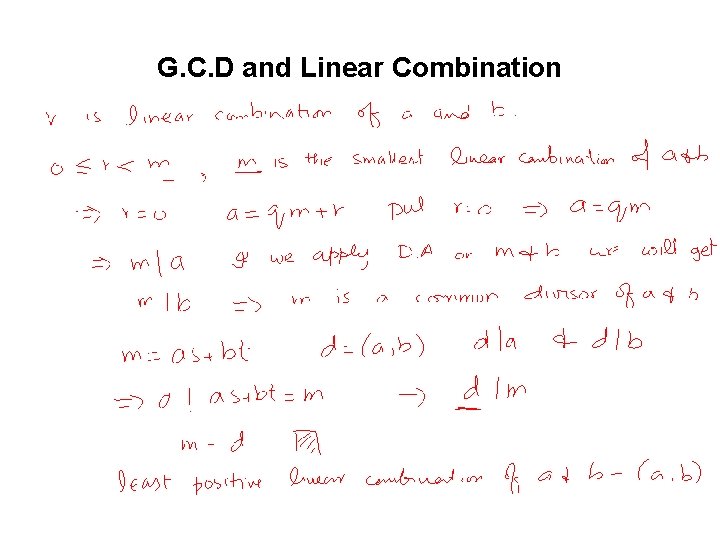 G.C.D and Linear Combination
r is linear combination of a and b.
0 ≤ r < m , m is the smallest linear combination of a & b
⇒ r = 0 a = qm + r put r = 0 ⇒ a = qm
⇒ m | a If we apply D.A on m & b we will get
m | b ⇒ m is a common divisor of a & b
m = as + bt d = (a, b) d | a & d | b
⇒ d | as + bt = m → d | m
m = d
least positive linear combination of a & b = (a, b)